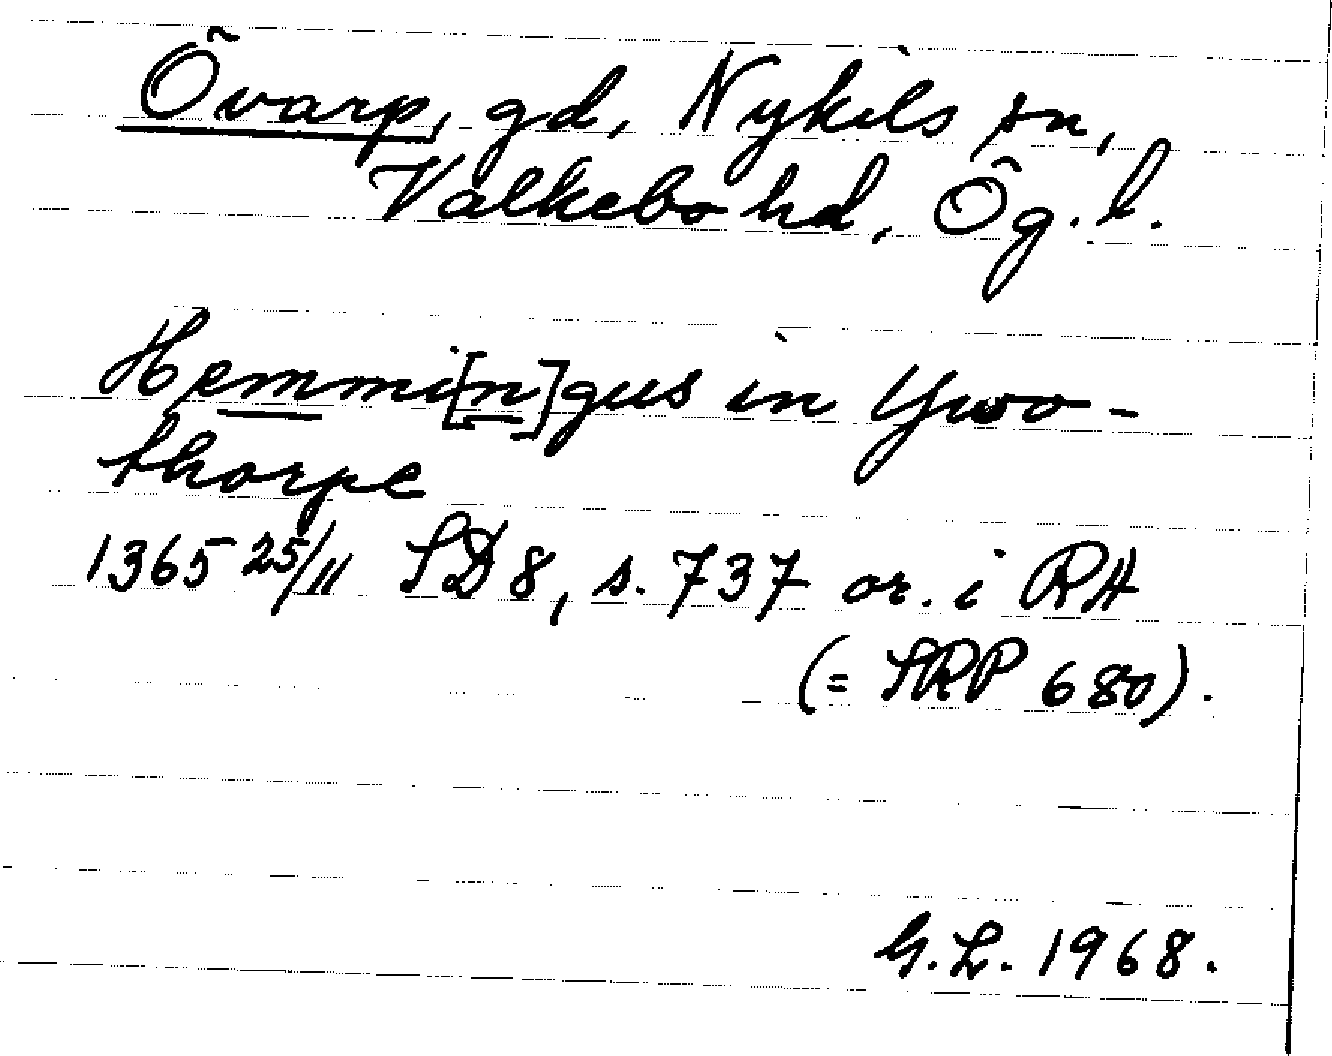 Övarp, gd, Nykils sn,
Valkebo hd, Ög. l.
Hemmi[n]gus in Ywo-
thorpe
1365 25/11 SD 8, s. 737 or. i RA
(= SRP 680).
G.L. 1968.